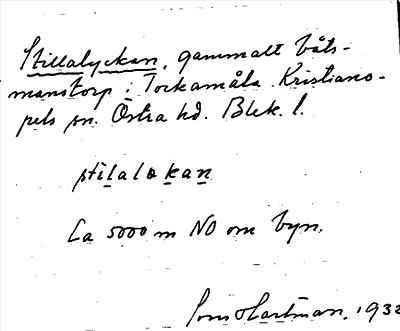 Stillalyckan, gammalt båts-
manstorp i Torkamåla Kristiano-
pels sn. Östra hd. Blek. l.
stilalokan
Ca 5000 m NO om byn.
Hartman, 1932